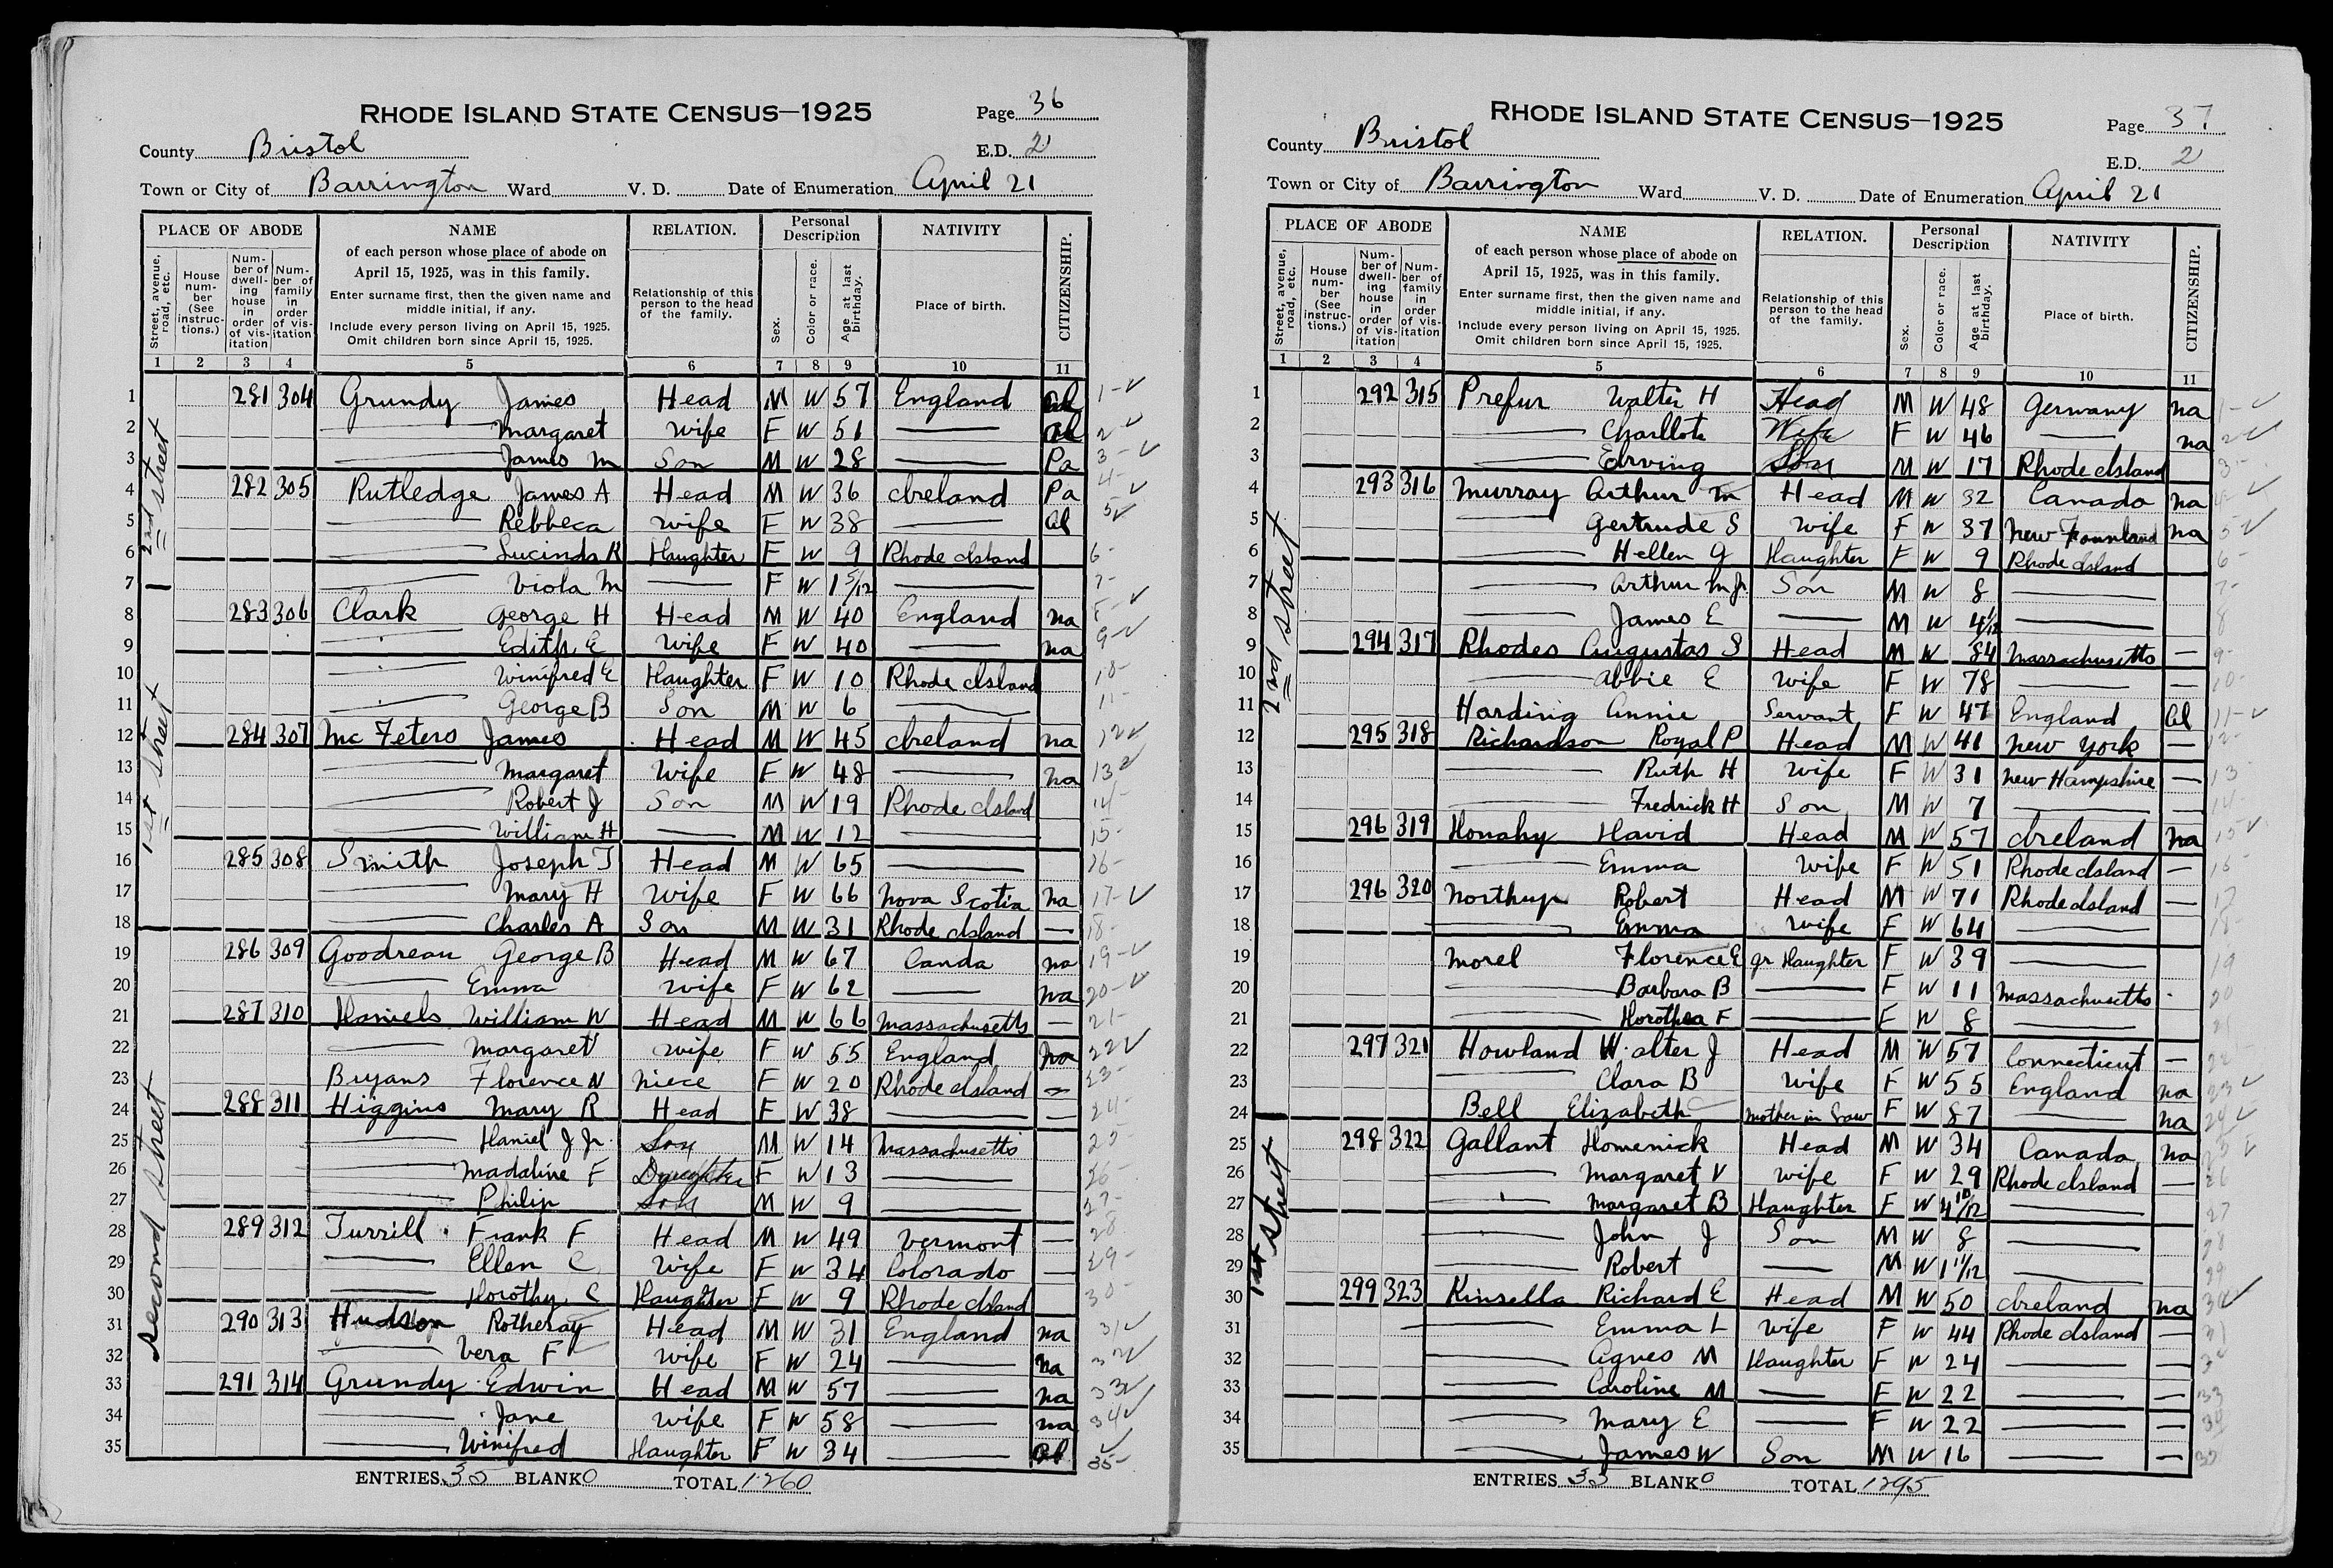 RHODE ISLAND STATE CENSUS—1925
Page 36
County Bristol
E.D. 2
Town or City of Barrington Ward V. D. Date of Enumeration April 21
PLACE OF ABODE NAME RELATION. Personal Description NATIVITY CITIZENSHIP.
Street, avenue, road, etc.
House number (See instructions.)
Number of dwelling house in order of visitation
Number of family in order of visitation
of each person whose place of abode on
April 15, 1925, was in this family.
Enter surname first, then the given name and
middle initial, if any.
Include every person living on April 15, 1925.
Omit children born since April 15, 1925.
Relationship of this
person to the head
of the family.
Sex.
Color or race.
Age at last birthday.
Place of birth.
1 2 3 4 5 6 7 8 9 10 11
2nd street
1st street
Second street
1 281 304 Grundy James Head M W 57 England al 1-✓
2 — Margaret Wife F W 51 — al 2-✓
3 — James M Son M W 28 — Pa 3-✓
4 282 305 Rutledge James A Head M W 36 Ireland Pa 4-✓
5 — Rebbeca Wife F W 38 — al 5✓
6 — Lucinda R Daughter F W 9 Rhode Island 6-
7 — Viola M — F W 1 5/12 — 7-
8 283 306 Clark George H Head M W 40 England na 8-✓
9 — Edith E Wife F W 40 — na 9-✓
10 — Winifred E Daughter F W 10 Rhode Island 10-
11 — George B Son M W 6 — 11-
12 284 307 Mc Feters James Head M W 45 Ireland na 12✓
13 — Margaret Wife F W 48 — na 13✓
14 — Robert J Son M W 19 Rhode Island 14-
15 — William H — M W 12 — 15-
16 285 308 Smith Joseph T Head M W 65 — 16-
17 — Mary H Wife F W 66 Nova Scotia na 17-✓
18 — Charles A Son M W 31 Rhode Island — 18-
19 286 309 Goodreau George B Head M W 67 Canda na 19-✓
20 — Emma Wife F W 62 — na 20-✓
21 287 310 Daniels William W Head M W 66 Massachusetts — 21-
22 — Margaret Wife F W 55 England na 22✓
23 Bryans Florence N Niece F W 20 Rhode Island — 23-
24 288 311 Higgins Mary R Head F W 38 — — 24-
25 — Daniel J Jr. Son M W 14 Massachusetts 25-
26 — Madaline F Daughter F W 13 — 26-
27 — Philip Son M W 9 — 27-
28 289 312 Turrill Frank F Head M W 49 Vermont — 28
29 — Ellen C Wife F W 34 Colorado — 29-
30 — Dorothy C Daughter F W 9 Rhode Island 30-
31 290 313 Hudson Rotheray Head M W 31 England na 31✓
32 — Vera F Wife F W 24 — na 32✓
33 291 314 Grundy Edwin Head M W 57 — na 33✓
34 — Jane Wife F W 58 — na 34✓
35 — Winifred Daughter F W 34 — al 35-✓
ENTRIES 35 BLANK 0 TOTAL 1260
RHODE ISLAND STATE CENSUS—1925
Page 37
County Bristol
E.D. 2
Town or City of Barrington Ward V. D. Date of Enumeration April 21
PLACE OF ABODE NAME RELATION. Personal Description NATIVITY CITIZENSHIP.
Street, avenue, road, etc.
House number (See instructions.)
Number of dwelling house in order of visitation
Number of family in order of visitation
of each person whose place of abode on
April 15, 1925, was in this family.
Enter surname first, then the given name and
middle initial, if any.
Include every person living on April 15, 1925.
Omit children born since April 15, 1925.
Relationship of this
person to the head
of the family.
Sex.
Color or race.
Age at last birthday.
Place of birth.
1 2 3 4 5 6 7 8 9 10 11
2nd street
1st street
1 292 315 Prefur Walter H Head M W 48 Germany na 1-✓
2 — Charllote Wife F W 46 — na 2✓
3 — Edrving Son M W 17 Rhode Island 3-
4 293 316 Murray Arthur M Head M W 32 Canado na 4✓
5 — Gertrude S Wife F W 37 New Founland na 5✓
6 — Hellen G Daughter F W 9 Rhode Island 6-
7 — Arthur M Jr Son M W 8 — 7-
8 — James E — M W 4 1/12 — 8
9 294 317 Rhodes Augustas S Head M W 84 Massachusetts — 9-
10 — Abbie E Wife F W 78 — — 10-
11 Harding Annie Servant F W 47 England al 11-✓
12 295 318 Richardson Royal P Head M W 41 New York — 12-
13 — Ruth H Wife F W 31 New Hampshire — 13
14 — Fredrick H Son M W 7 — — 14-
15 296 319 Donahy David Head M W 57 Ireland na 15✓
16 — Emma Wife F W 51 Rhode Island — 16-
17 296 320 Northup Robert Head M W 71 Rhode Island — 17
18 — Emma Wife F W 64 — 18-
19 Morel Florence E gr Daughter F W 39 — 19
20 — Barbara B — F W 11 Massachusetts 20
21 — Dorothea F — F W 8 — 21
22 297 321 Howland Walter J Head M W 57 Connecticut — 22-
23 — Clara B Wife F W 55 England na 23✓
24 Bell Elizabeth Mother in Law F W 87 — na 24✓
25 298 322 Gallant Domenick Head M W 34 Canada na 25✓
26 — Margaret V Wife F W 29 Rhode Island — 26
27 — Margaret B Daughter F W 4 10/12 — 27
28 — John J Son M W 8 — 28
29 — Robert — M W 1 11/12 — 29
30 299 323 Kinsella Richard E Head M W 50 Ireland na 30✓
31 — Emma L Wife F W 44 Rhode Island — 31
32 — Agnes M Daughter F W 24 — — 32
33 — Caroline M — F W 22 — — 33
34 — Mary E — F W 22 — — 34
35 — James W Son M W 16 — — 35
ENTRIES 35 BLANK 0 TOTAL 1295